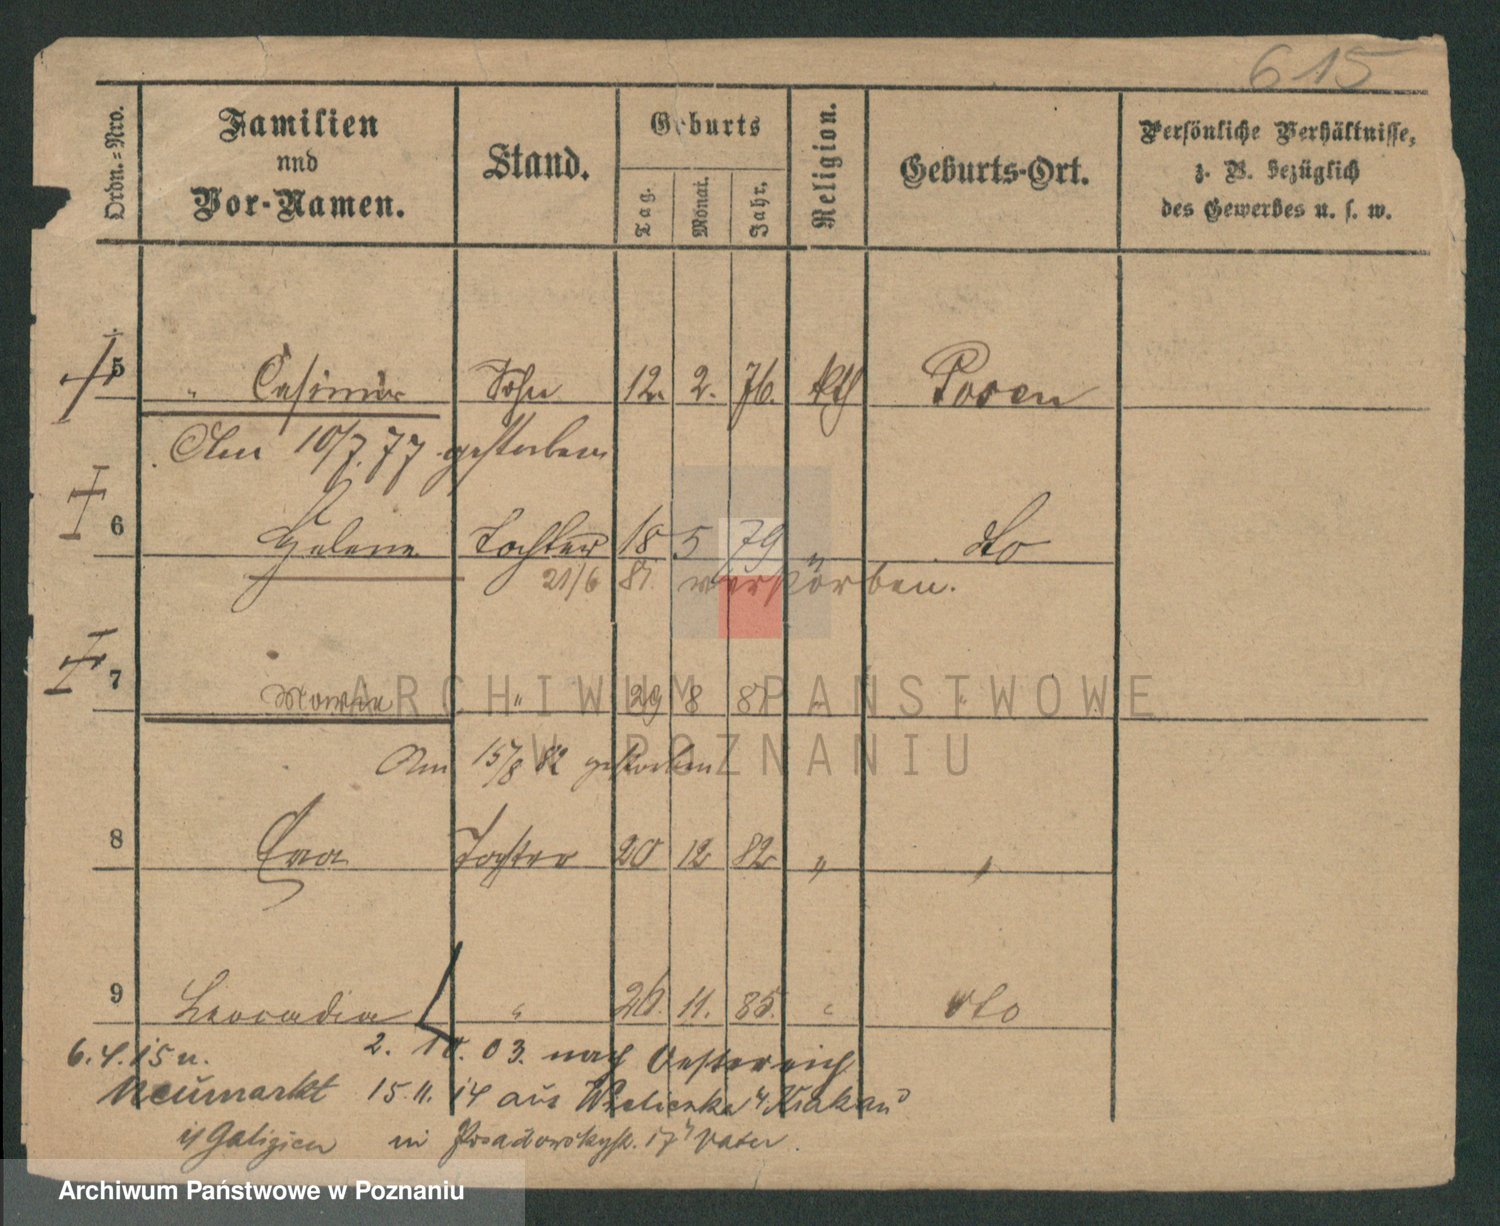 615
Ordn.=Nro.
Familien
und
Vor-Namen.
Stand.
Geburts
Tag.
Monat.
Jahr.
Religion.
Geburts-Ort.
Persönliche Verhältnisse,
z. B. bezüglich
des Gewerbes u. s. w.
5 " Casimir Sohn 12. 2. 76. kth Posen
Am 10/7. 77 gestorben
6 Helene Tochter 18 5 79 " dto
21/6 81. verstorben.
7 " 29 8 81 "
ARCHIWUM PAŃSTWOWE
W POZNANIU
Am 15/8 82 gestorben
8 Eva Tochter 20 12 82 " "
9 Leocadia " 26. 11. 85. " dto
2. 10. 03. nach Oesterreich
6. 4. 15 n.
Neumarkt 15. 11. 14 aus Wieliczka Krakau
Galizien in Posadowskystr. 17 Vater.
Archiwum Państwowe w Poznaniu